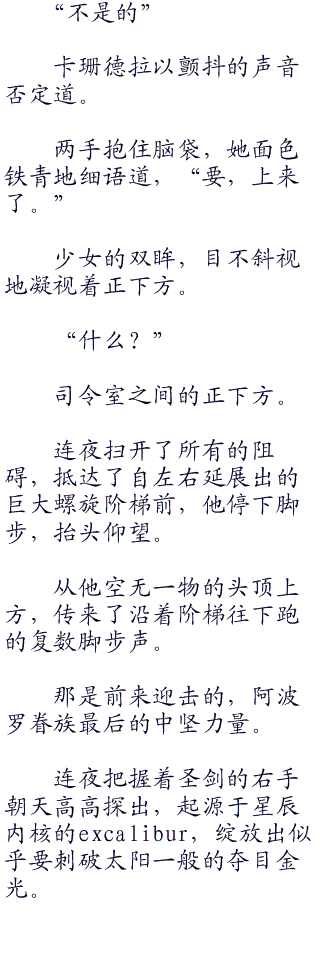 “不是的”
卡珊德拉以颤抖的声音
否定道。
两手抱住脑袋，她面色
铁青地细语道，“要，上来
了。”
少女的双眸，目不斜视
地凝视着正下方。
“什么？”
司令室之间的正下方。
连夜扫开了所有的阻
碍，抵达了自左右延展出的
巨大螺旋阶梯前，他停下脚
步，抬头仰望。
从他空无一物的头顶上
方，传来了沿着阶梯往下跑
的复数脚步声。
那是前来迎击的，阿波
罗眷族最后的中坚力量。
连夜把握着圣剑的右手
朝天高高探出，起源于星辰
内核的excalibur，绽放出似
乎要刺破太阳一般的夺目金
光。